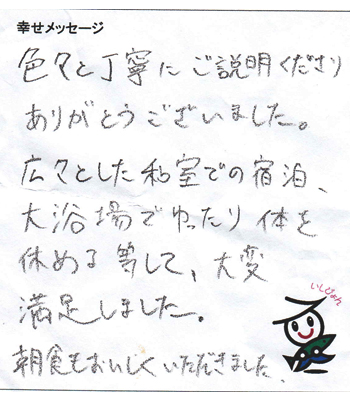 幸せメッセージ
色々と丁寧にご説明くださり
ありがとうございました。
広々とした和室での宿泊、
大浴場でゆったり体を
休める等して、大変
満足しました。
いしぴょん
朝食もおいしくいただきました、